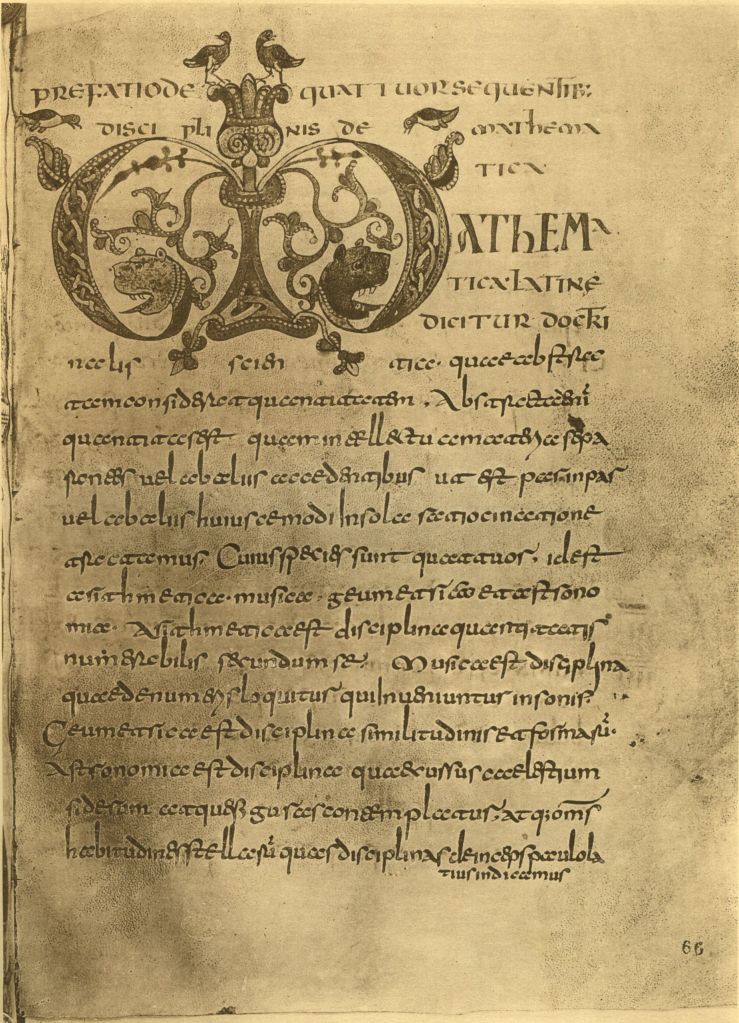 PREFATIO DE QUATTUOR SEQUENTIB:
DISCIPLINIS DE MATHEMA
TICA
MATHEMA
TICA LATINE
DICITUR DOCTRI
nalis scientiae. quae abstrac
tam considerat quantitatem. Abstracta enī
quantitas est quam intellectu a materia sepa
rantes vel ab aliis accedentibus ut est par inpar
vel ab aliis huiuscemodi In sola ratiocinatione
tractamus. Cuius species sunt quattuor. id est
arithmetica. musica. geumetrica et astrono
mia. Arithmetica est disciplina quantitatis
numerabilis secundum se. Musica est disciplina
quae de numeris loquitur qui Inveniuntur in sonis.
Geumetrica est disciplina similitudinis et formarū.
Astronomia est disciplina quae cursus caelestium
siderum atque figuras contemplatur. atq; om̄s
habitudines stellarū quas disciplinas deinceps paulo la
tius indicamus
66